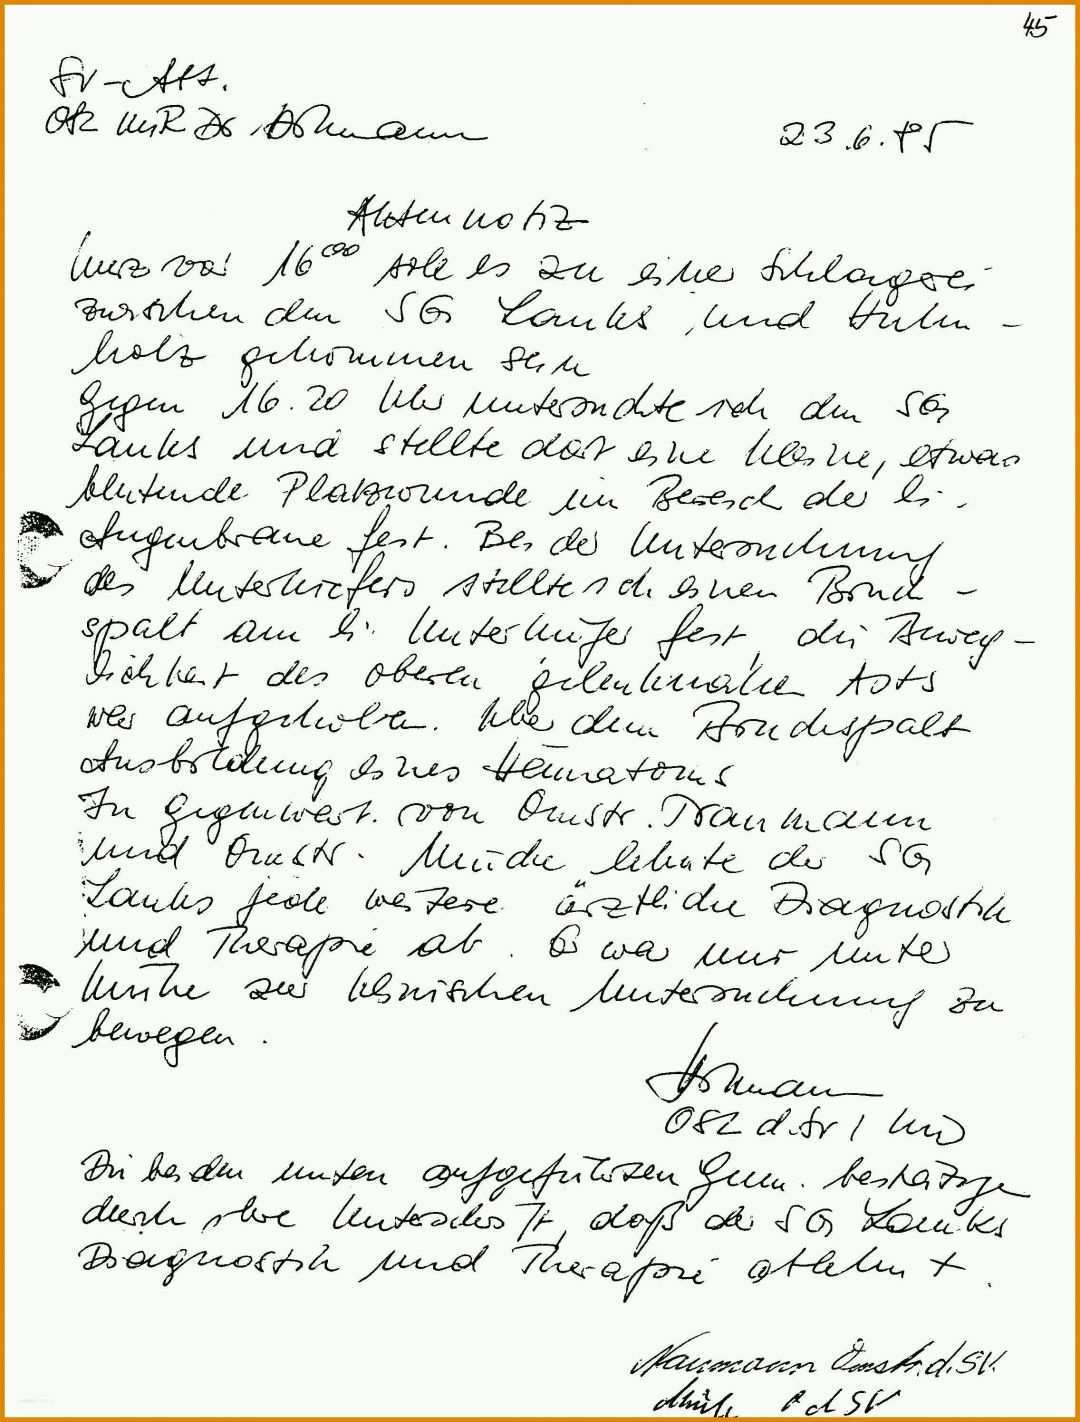 45
SV-Att.
OSL MR Dr. Hohmann
23.6.85
Aktennotiz
kurz vor 16⁰⁰ soll es zu einer Schlägerei
zwischen den SG Lauks und Huhn-
holz gekommen sein
Gegen 16.20 Uhr untersuchte ich den SG
Lauks und stellte dort eine kleine, etwas
blutende Platzwunde im Bereich der li.
Augenbraue fest. Bei der Untersuchung
des Unterkiefers stellte ich einen Bruch-
spalt am li. Unterkiefer fest, die Beweg-
lichkeit des oberen gelenknahen Asts
war aufgehoben. Über dem Bruchspalt
Ausbildung eines Hämatoms
In Gegenwart von Omstr. Naumann
und Omstr. Müche lehnte der SG
Lauks jede weitere ärztliche Diagnostik
und Therapie ab. Er war nur unter
Mühe zur klinischen Untersuchung zu
bewegen.
Hohmann
OSL d. SV / MD
Die beiden unten aufgeführten Gen. bestätigen
durch ihre Unterschrift, daß der SG Lauks
Diagnostik und Therapie ablehnt.
Naumann Omstr. d. SV.
d SV